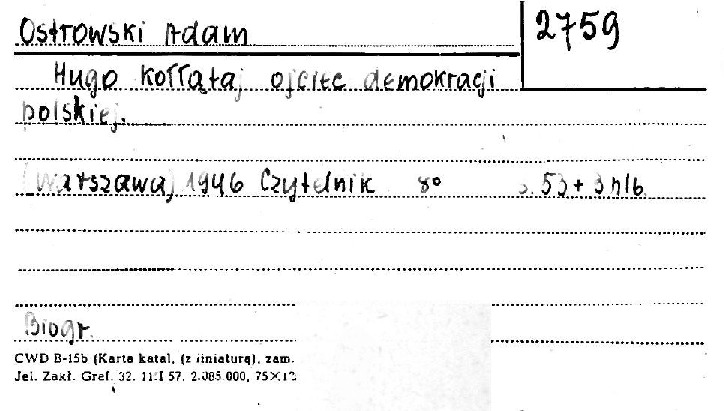 Ostrowski Adam
2759
Hugo Kołłątaj ojciec demokracji
polskiej.
[Warszawa] 1946 Czytelnik 8° s. 53 + 3 nlb
Biogr.
CWD B-15b (Karta katal. (z liniaturą). zam.
Jel. Zakł. Graf. 32. 11.I 57. 2.085 000, 75×12